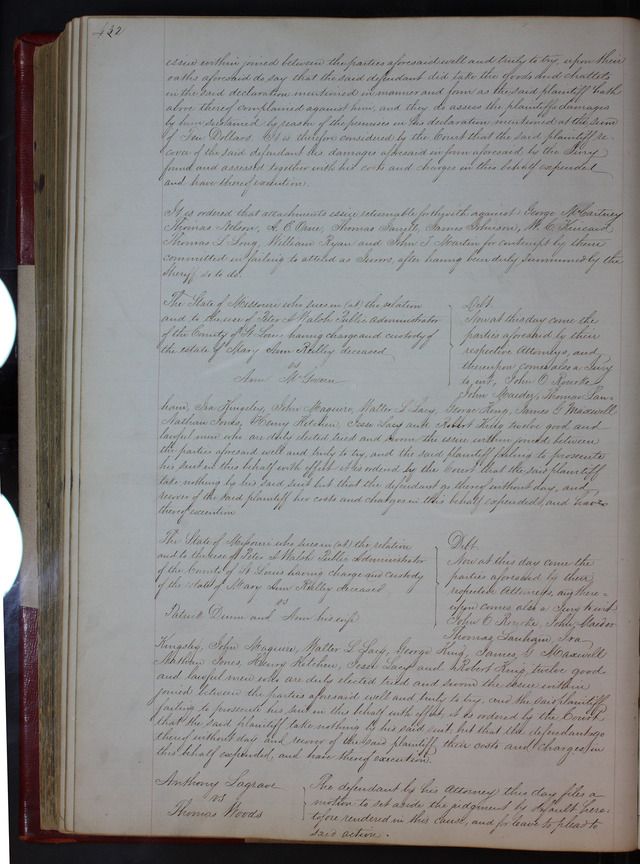 432
issue within joined between the parties aforesaid well and truly to try, upon their
oaths aforesaid do say that the said defendant did take the goods and chattels
in the said declaration mentioned in manner and form as the said plaintiff hath
above thereof complained against him, and they do assess the plaintiffs damages
by him sustained by reason of the premises in the declaration mentioned at the sum
of Ten Dollars. It is therefore considered by the Court that the said plaintiff re
cover of the said defendant his damages aforesaid in form aforesaid by the Jury
found and assessed together with his costs and charges in this behalf expended
and have thereof execution.
It is ordered that attachments issue, returnable forthwith against George McCartney
Thomas Nelson, Thomas Farrell, James Johnson, W. C. Kincaid,
Thomas L. Long, William Ryan and John T Martin for contempt by them
committed in failing to attend as Jurors, after having been duly summoned by the
Sheriff so to do.
The State of Missouri who sues in (at) the relation
and to the use of Peter A Walsh Public Administrator
of the County of St Louis having charge and custody of
the estate of Mary Ann Reilley deceased
vs
Ann McGovern
Debt.
Now at this day come the
parties aforesaid by their
respective Attorneys, and
thereupon comes also a Jury
to wit, John O'Rourke,
John Maider, Thomas Lan-
ham, Ira Kingsley, John Maguire, Walter L Lacy, George King, James G Maxwell
Nathan Jones, Henry Kitchen, Jesse Lacy and Robert King twelve good and
lawful men who are duly elected tried and sworn the issue within joined between
the parties aforesaid well and truly to try, and the said plaintiff failing to prosecute
his suit in this behalf with effect it is ordered by the Court that the said plaintiff
take nothing by his said suit but that the defendant go thereof without day, and
recover of the said plaintiff her costs and charges in this behalf expended, and have
thereof execution
The State of Missouri who sues in (at) the relation
and to the use of Peter A Walsh Public Administrator
of the County of St Louis having charge and custody
of the estate of Mary Ann Reilley deceased
vs
Patrick Dunn and Ann his wife
Debt.
Now at this day come the
parties aforesaid by their
respective Attorneys, and there-
upon comes also a Jury to wit
John O'Rourke, John Maider
Thomas Lanham, Ira
Kingsley, John Maguire, Walter L Lacy, George King, James G Maxwell
Nathan Jones Henry Kitchen, Jesse Lacy and Robert King, twelve good
and lawful men who are duly elected tried and sworn the issue within
joined between the parties aforesaid well and truly to try, and the said plaintiff
failing to prosecute his suit in this behalf with effect, it is ordered by the Court
that the said plaintiff take nothing by his said suit, but that the defendants go
thereof without day and recover of the said plaintiff their costs and charges in
this behalf expended, and have thereof execution.
Anthony Lagrave
vs
Thomas Woods
The defendant by his Attorney this day files a
motion to set aside the judgment by default here-
tofore rendered in this cause, and for leave to plead to
said action.